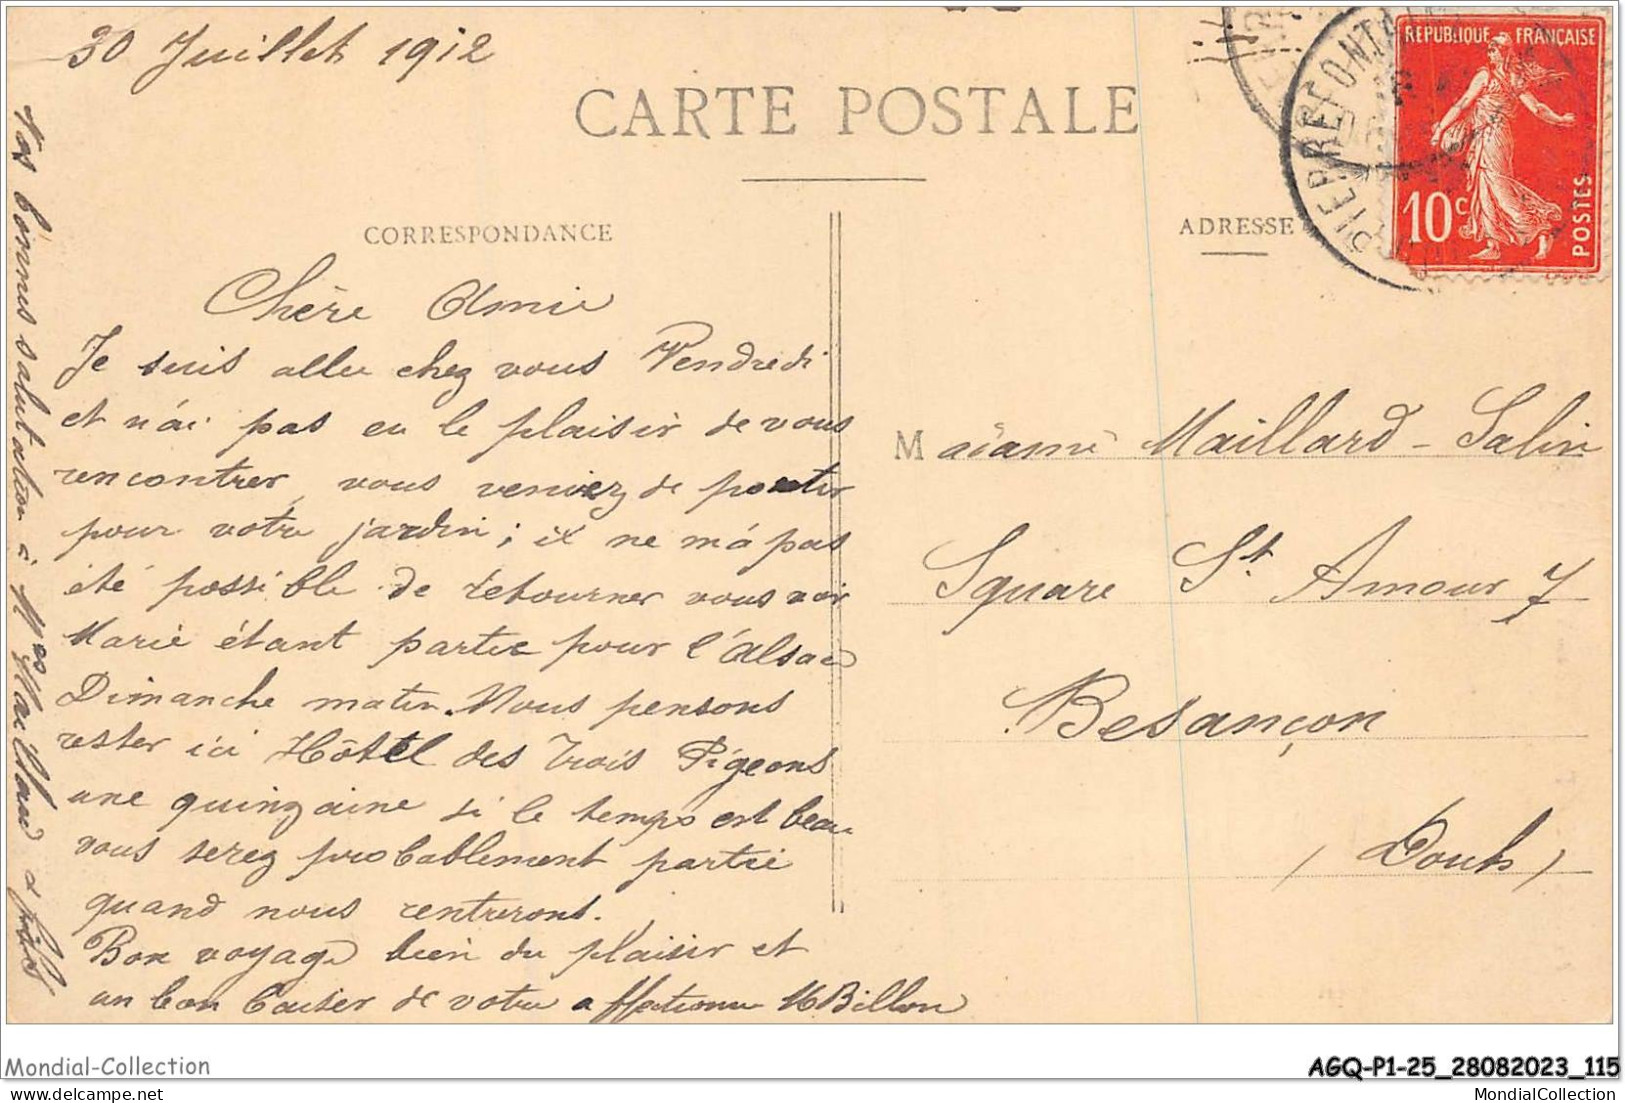 30 Juillet 1912
CARTE POSTALE
CORRESPONDANCE
ADRESSE
REPUBLIQUE FRANÇAISE
10c
POSTES
PIERREFONTAINE
Chère Amie
Je suis allée chez vous Vendredi
et n'ai pas eu le plaisir de vous
rencontrer, vous veniez de partir
pour votre jardin; il ne m'a pas
été possible de retourner vous voir
Marie étant partie pour l'Alsace
Dimanche matin. Nous pensons
rester ici Hôtel des Trois Pigeons
une quinzaine si le temps est beau
vous serez probablement partie
quand nous rentrerons.
Bon voyage bien du plaisir et
un bon baiser de votre affectionnée MBillon
Nos bonnes salutation à Mr Maillard & fils
Madame Maillard-Salin
Square St. Amour 7
Besançon
(Doubs)
Mondial-Collection
AGQ-P1-25_28082023_115
www.delcampe.net
MondialCollection